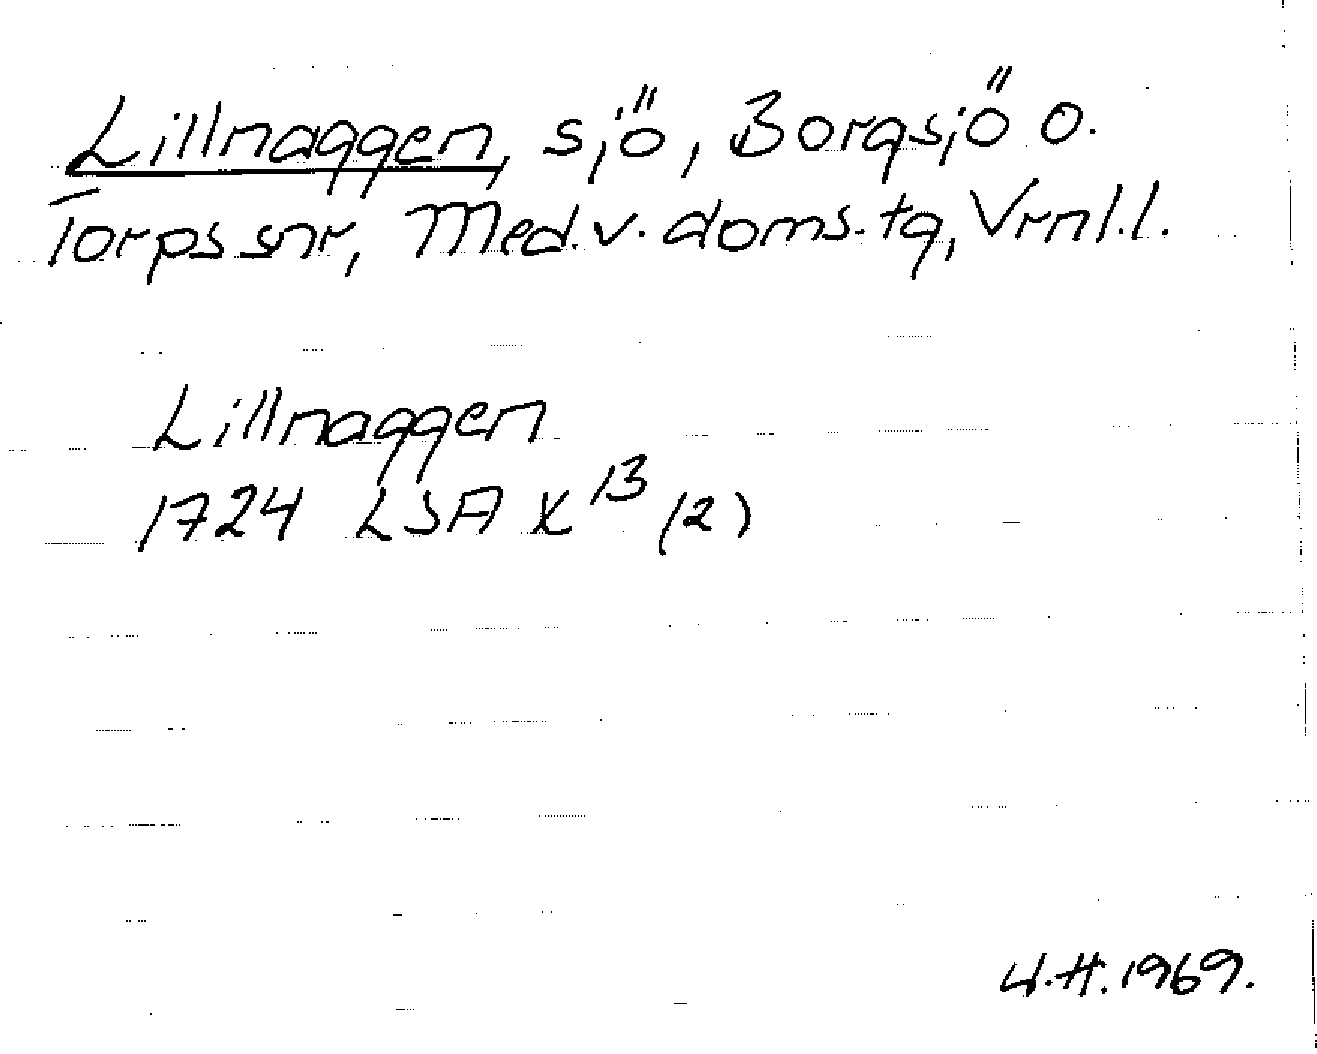 Lillnaggen, sjö, Borgsjö o.
Torps snr, Med. v. doms. tg, Vrnl. l.
Lillnaggen
1724 LSA X 13 (2)
U.H. 1969.